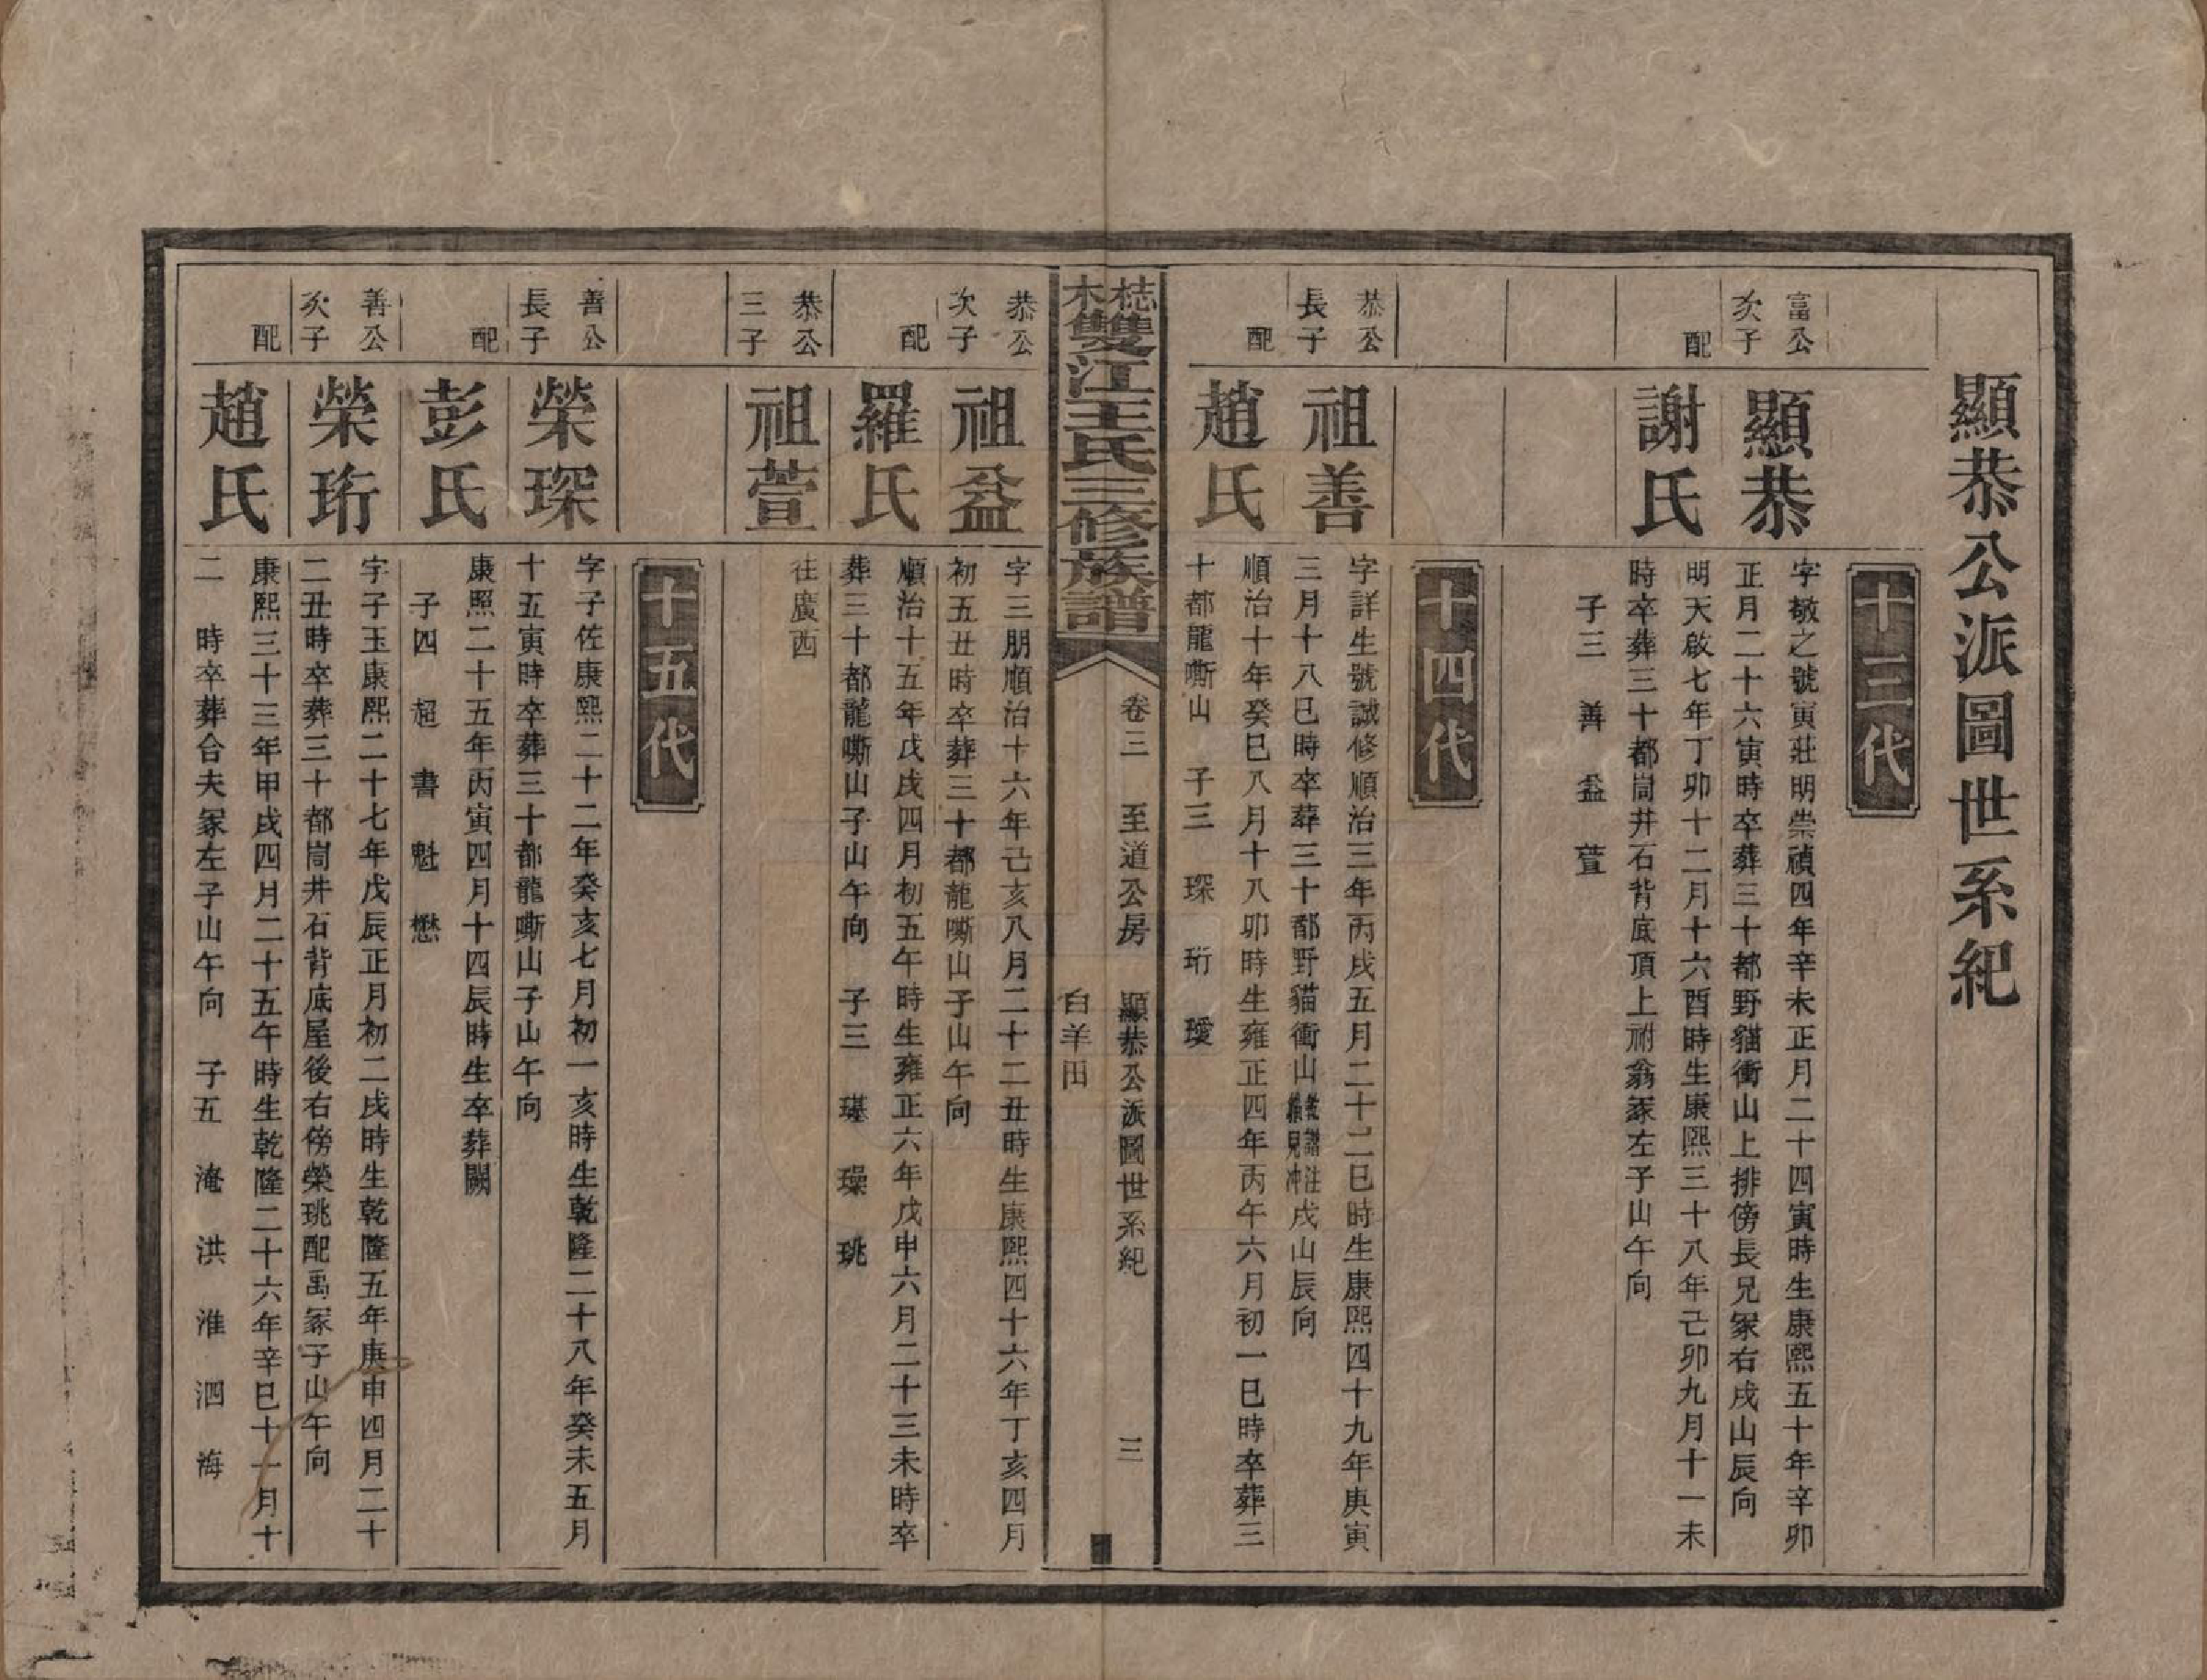 顯恭公派圖世系紀
十三代
富公
次子
顯恭
字敬之號寅莊明崇禎四年辛未正月二十四寅時生康熙五十年辛卯
正月二十六寅時卒葬三十都野貓衝山上排傍長兄冢右戌山辰向
配
謝氏
明天啟七年丁卯十二月十六酉時生康熙三十八年己卯九月十一未
時卒葬三十都峝井石背底頂上祔翁冢左子山午向
子三 善 益 萱
十四代
恭公
長子
祖善
字詳生號誠修順治三年丙戌五月二十二巳時生康熙四十九年庚寅
三月十八巳時卒葬三十都野貓衝山舊譜注貓見冲戌山辰向
配
趙氏
順治十年癸巳八月十八卯時生雍正四年丙午六月初一巳時卒葬三
十都龍嘶山 子三 琛 珩 璦
桋木雙江王氏三修族譜
卷三 至道公房 顯恭公派圖世系紀 三
白羊田
恭公
次子
祖益
字三朋順治十六年己亥八月二十二丑時生康熙四十六年丁亥四月
初五丑時卒葬三十都龍嘶山子山午向
配
羅氏
順治十五年戊戌四月初五午時生雍正六年戊申六月二十三未時卒
葬三十都龍嘶山子山午向 子三 璂 璪 珧
恭公
三子
祖萱
往廣西
十五代
善公
長子
榮琛
字子佐康熙二十二年癸亥七月初一亥時生乾隆二十八年癸未五月
十五寅時卒葬三十都龍嘶山子山午向
配
彭氏
康熙二十五年丙寅四月十四辰時生卒葬闕
子四 超 書 魁 懋
善公
次子
榮珩
字子玉康熙二十七年戊辰正月初二戌時生乾隆五年庚申四月二十
二丑時卒葬三十都峝井石背底屋後右傍榮珧配禹冢子山午向
配
趙氏
康熙三十三年甲戌四月二十五午時生乾隆二十六年辛巳十一月十
二 時卒葬合夫冢左子山午向 子五 淹 洪 淮 泗 海